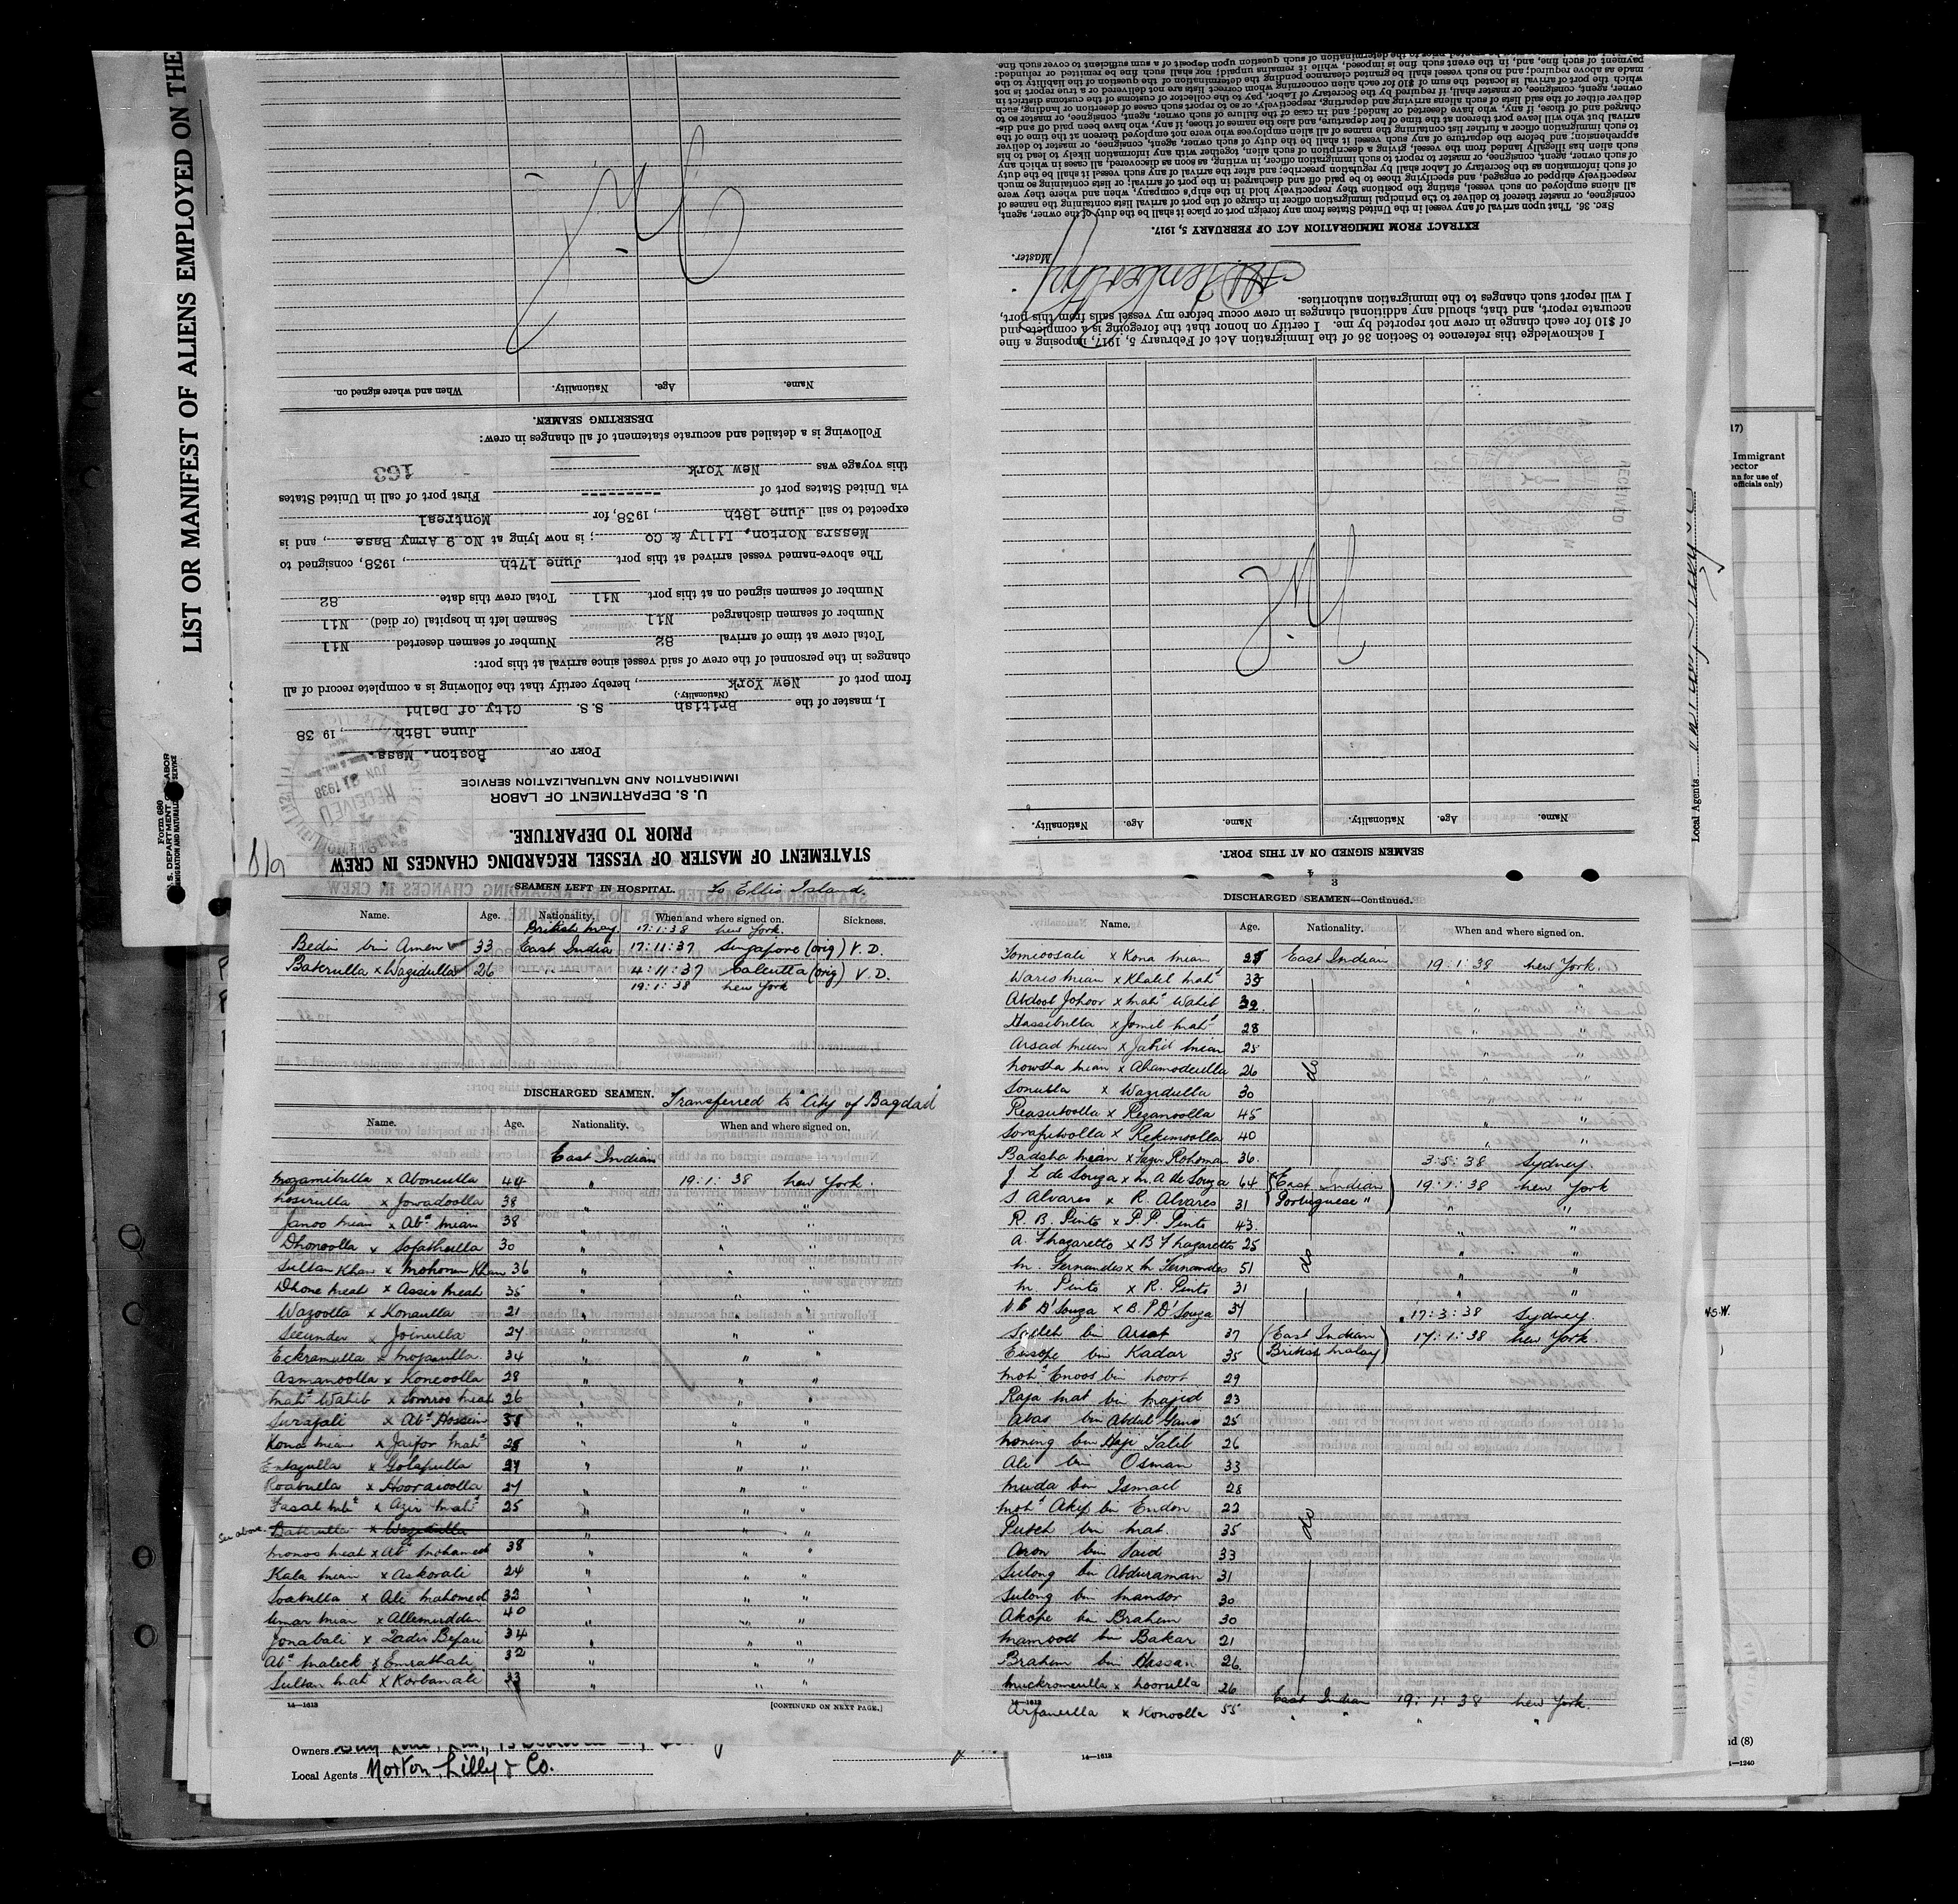 LIST OR MANIFEST OF ALIENS EMPLOYED ON THE
Form 680
U. S. DEPARTMENT OF LABOR
IMMIGRATION AND NATURALIZATION SERVICE
STATEMENT OF MASTER OF VESSEL REGARDING CHANGES IN CREW
PRIOR TO DEPARTURE.
U. S. DEPARTMENT OF LABOR
IMMIGRATION AND NATURALIZATION SERVICE
RECEIVED
JUN 21 1938
PORT OF Boston, Mass.
June 18th, 19 38
I, master of the British S.S. City of Delhi
(Nationality.)
from port of New York, hereby certify that the following is a complete record of all
changes in the personnel of the crew of said vessel since arrival at this port:
Total crew at time of arrival 82 Number of seamen deserted Nil
Number of seamen discharged Nil Seamen left in hospital (or died) Nil
Number of seamen signed on at this port Nil Total crew this date 82
The above-named vessel arrived at this port June 17th, 1938, consigned to
Messrs Norton, Lilly & Co; is now lying at No 9 Army Base, and is
expected to sail June 18th, 1938, for Montreal
via United States port of --------- First port of call in United States
this voyage was New York 163
Following is a detailed and accurate statement of all changes in crew:
DESERTING SEAMEN.
Name. Age. Nationality. When and where signed on.
SEAMEN SIGNED ON AT THIS PORT.
Name. Age. Nationality. Name. Age. Nationality.
RECEIVED
I acknowledge this reference to Section 36 of the Immigration Act of February 5, 1917, imposing a fine
of $10 for each change in crew not reported by me. I certify on honor that the foregoing is a complete and
accurate report, and that, should any additional changes in crew occur before my vessel sails from this port,
I will report such changes to the immigration authorities.
Master.
EXTRACT FROM IMMIGRATION ACT OF FEBRUARY 5, 1917.
SEC. 36. That upon arrival of any vessel in the United States from any foreign port or place it shall be the duty of the owner, agent,
consignee, or master thereof to deliver to the principal immigration officer in charge of the port of arrival lists containing the names of
all aliens employed on such vessel, stating the positions they respectively hold in the ship's company, when and where they were
respectively shipped or engaged, and specifying those to be paid off and discharged in the port of arrival; or lists containing so much
of such information as the Secretary of Labor shall by regulation prescribe; and after the arrival of any such vessel it shall be the duty
of such owner, agent, consignee, or master to report to such immigration officer, in writing, as soon as discovered, all cases in which any
such alien has illegally landed from the vessel, giving a description of such alien, together with any information likely to lead to his
apprehension; and before the departure of any such vessel it shall be the duty of such owner, agent, consignee, or master to deliver
to such immigration officer a further list containing the names of all alien employees who were not employed thereon at the time of the
arrival but who will leave port thereon at the time of her departure, and also the names of those, if any, who have been paid off and dis-
charged and of those, if any, who have deserted or landed; and in case of the failure of such owner, agent, consignee, or master so to
deliver either of the said lists of such aliens arriving and departing, respectively, or so to report such cases of desertion or landing, such
owner, agent, consignee, or master, shall, if required by the Secretary of Labor, pay to the collector of customs of the customs district in
which the port of arrival is located the sum of $10 for each alien concerning whom correct lists are not delivered or a true report is not
made as above required; and no such vessel shall be granted clearance pending the determination of the question of the liability to the
payment of such fine, and, in the event such fine is imposed, while it remains unpaid; nor shall such fine be remitted or refunded:
SEAMEN LEFT IN HOSPITAL. To Ellis Island.
Name. Age. Nationality. When and where signed on. Sickness.
British Malay 17:1:38 New York.
Bedin bin Amen 33 East India 17:11:37 Singapore (orig) V.D.
Bakrulla x Wazidulla 26 " " 4:11:37 Calcutta (orig) V.D.
19:1:38 New York
DISCHARGED SEAMEN. Transferred to "City of Bagdad"
Name. Age. Nationality. When and where signed on.
East Indian
Mozamibulla x Abonculla 44 " 19:1:38 New York.
Nosirulla x Jowadoolla 38 " " "
Janoo Mean x Abd Mean 38 " " "
Dhonoolla x Sofathulla 30 " " "
Sultan Khan x Mohorum Khan 36 " " "
Dhone Meat x Assir Meat 35 " " "
Wazoolla x Konaulla 21 " " "
Secunder x Joinulla 24 " " "
Eckramulla x Mojaoulla 34 " " "
Asmanoolla x Koneoolla 28 " " "
Mahd Wahib x Omroo Meah 26 " " "
Surajali x Abd Hossein 38 " " "
Kona Mean x Jaifor Mahd 28 " " "
Entazulla x Golapulla 27 " " "
Roabulla x Hooraioolla 27 " " "
Fasal Mahd x Azir Mahd 25 " " "
See above. Bakrulla x Wazidulla " " "
Monos Meah x Abd Mohamed 38 " " "
Kala Mean x Askorali 24 " " "
Soabulla x Ali Mahomed 32 " " "
Umar Mean x Allemuddin 40 " " "
Jonabali x Zadir Bepari 34 " " "
Abd Maleck x Emrathali 32 " " "
Sultan Mah x Korbanali 33 " " "
14—1612 [CONTINUED ON NEXT PAGE.]
3
DISCHARGED SEAMEN—Continued.
Name. Age. Nationality. When and where signed on.
Tomeoosali x Kona Mean 28 East Indian 19:1:38 New York.
Waris Mean x Khalil Mahd 35 " "
Abdool Johoor x Mahd Wahib 32 " "
Hassibulla x Jomil Mahd 28 " "
Arsad Mean x Jabid Mean 25 " "
Nowsha Mean x Ahamodulla 26 do " "
Sonulla x Wazidulla 30 " "
Reasutoolla x Rezanoolla 45 " "
Sorafutoolla x Rekimoolla 40 " "
Badsha Mean x Fazir Rohoman 36 3:5:38 Sydney.
J L de Souza x M. A de Souza 64 (East Indian) 19:1:38 New York
S Alvares x R. Alvares 31 (Portuguese " " "
R. B. Pinto x P. P. Pinto 43 " "
A. Fhazaretto x B Fhazaretto 25 " "
M. Fernandes x M Fernandes 51 do " "
M Pinto x R. Pinto 31 " "
D'Souza x B. P D'Souza 34 17:3:38 Sydney.
Salleh bin Arsat 37 (East Indian) 17:1:38 New York.
Eusope bin Kadar 35 (British Malay)
Mohd Enoos bin Noort 29
Raja Mat bin Majid 23
Abas bin Abdul Gano 25
Noning bin Haji Talib 26
Ali bin Osman 33
Muda bin Ismail 28
Mohd Akip bin Endon 22
Puteh bin Mat 35 do
Aron bin Said 33
Sulong bin Abduraman 31
Sulong bin Mansor 30
Akope bin Brahim 30
Mamood bin Bakar 21
Brahim bin Hassan 26
Muckromulla x Noorulla 26
14—1612 East Indian 19:1:38 New York.
Arfanulla x Konoolla 55 " " " "
Owners
Local Agents Norton-Lilly & Co.
14—1612
Local Agents
17)
Immigrant
pector
nn for use of
officials only)
N.S.W.
nd (8)
4—1240